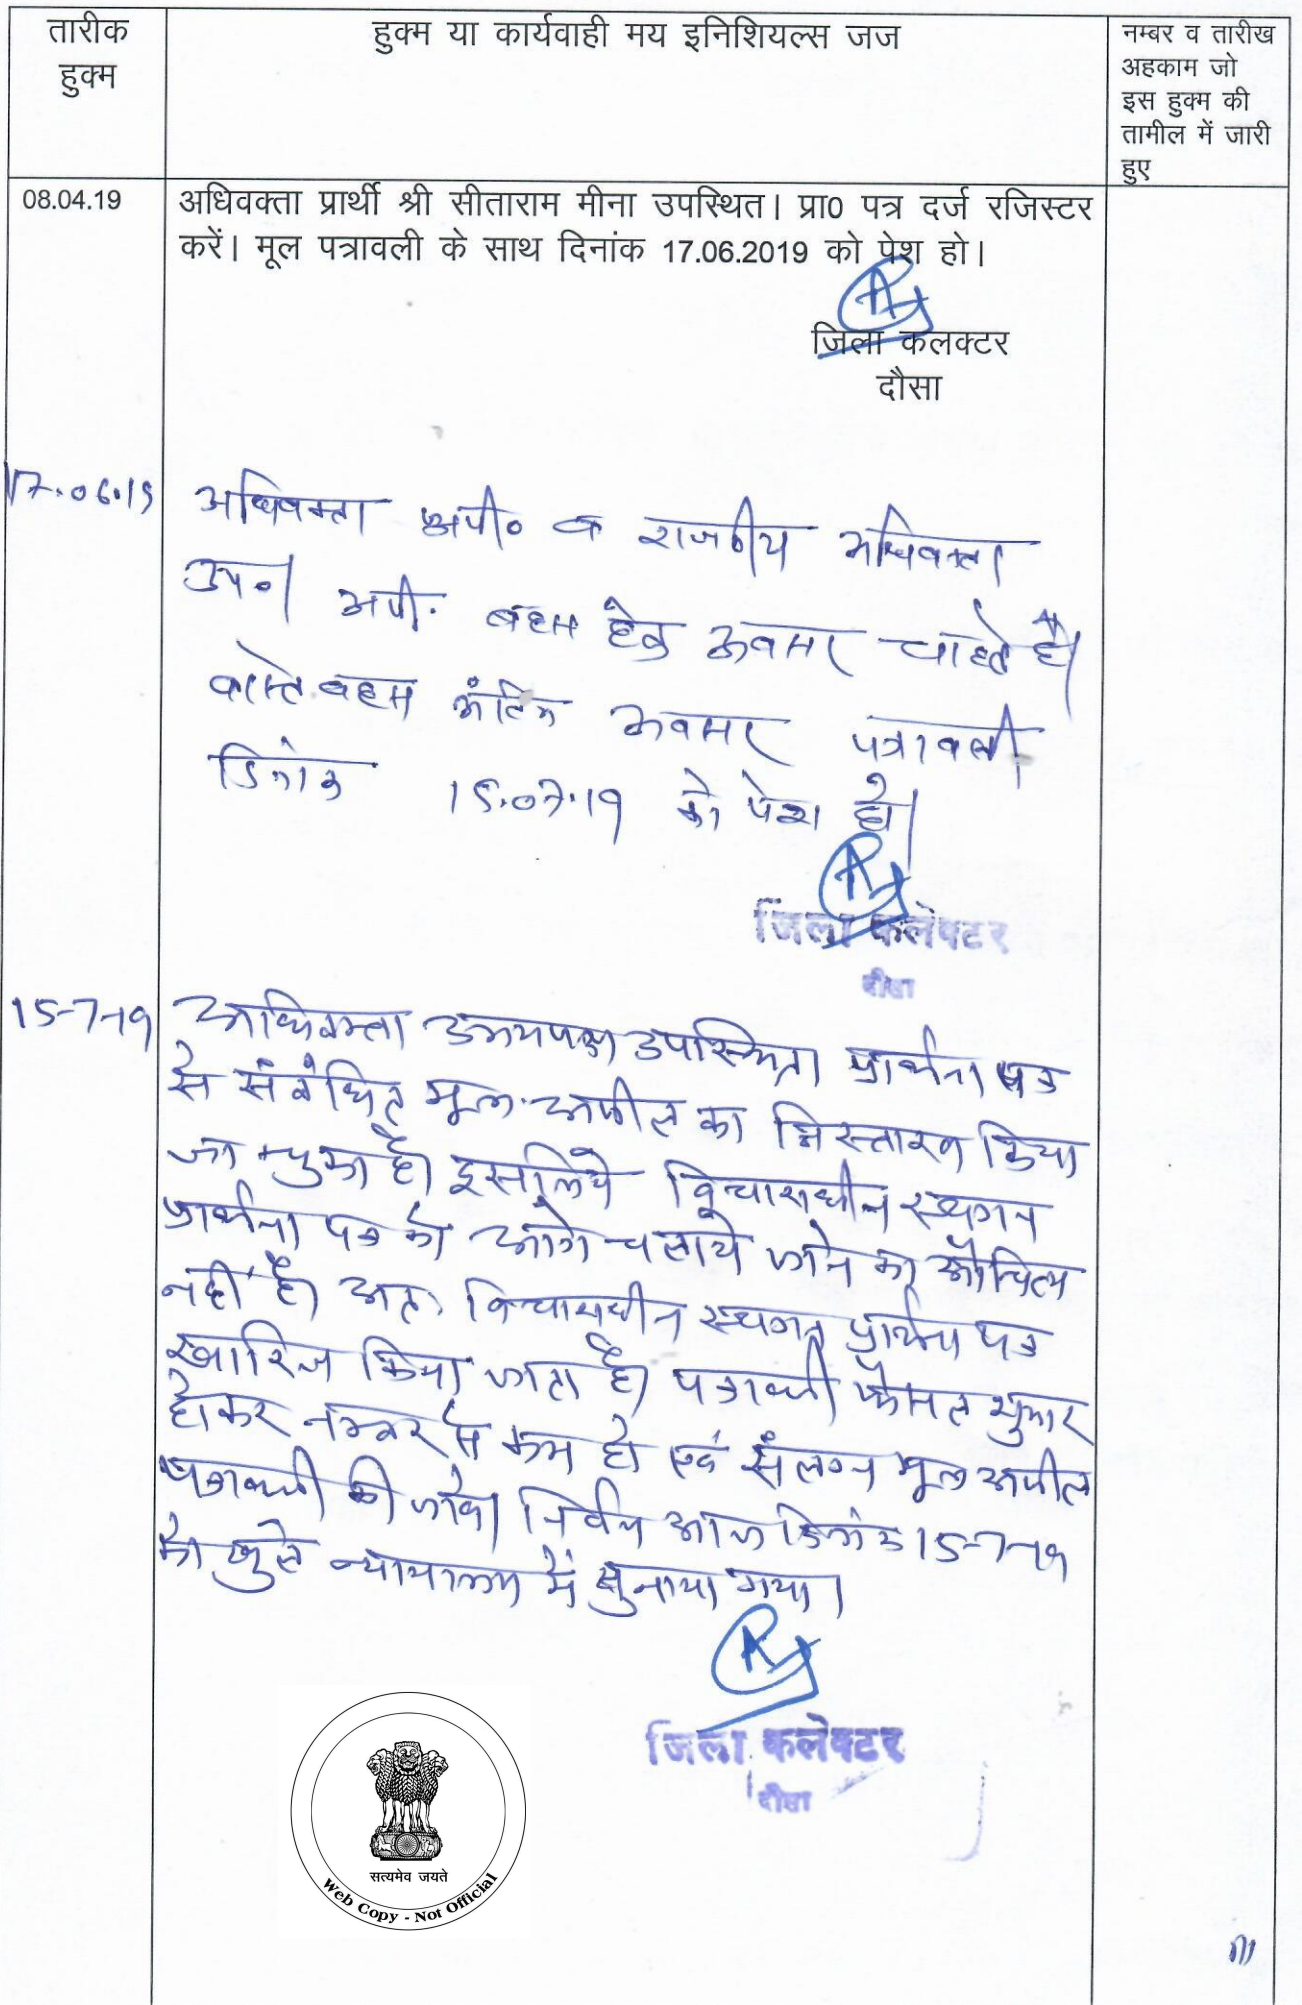 तारीक
हुक्म
हुक्म या कार्यवाही मय इनिशियल्स जज
नम्बर व तारीख
अहकाम जो
इस हुक्म की
तामील में जारी
हुए
08.04.19
अधिवक्ता प्रार्थी श्री सीताराम मीना उपस्थित। प्रा0 पत्र दर्ज रजिस्टर
करें। मूल पत्रावली के साथ दिनांक 17.06.2019 को पेश हो।
जिला कलक्टर
दौसा
17.06.19
अधिवक्ता अपी० व राजकीय अधिवक्ता
उप०। अपी. बहस हेतु अवसर चाहते हैं।
वास्ते बहस अंतिम अवसर पत्रावली
दिनांक 15.07.19 को पेश हो।
जिला कलेक्टर
दौसा
15-7-19
अधिवक्ता उभयपक्ष उपस्थित। प्रार्थना पत्र
से संबंधित मूल अपील का निस्तारण किया
जा चुका है। इसलिये विचाराधीन स्थगन
प्रार्थना पत्र को आगे चलाये जाने का औचित्य
नहीं है। अतः विचाराधीन स्थगन प्रार्थना पत्र
खारिज किया जाता है। पत्रावली फैसल शुमार
होकर नम्बर से कम हो एवं संलग्न मूल अपील
पत्रावली की जावे। निर्णय आज दिनांक 15-7-19
को खुले न्यायालय में सुनाया गया।
जिला कलेक्टर
दौसा
सत्यमेव जयते
Web Copy - Not Official